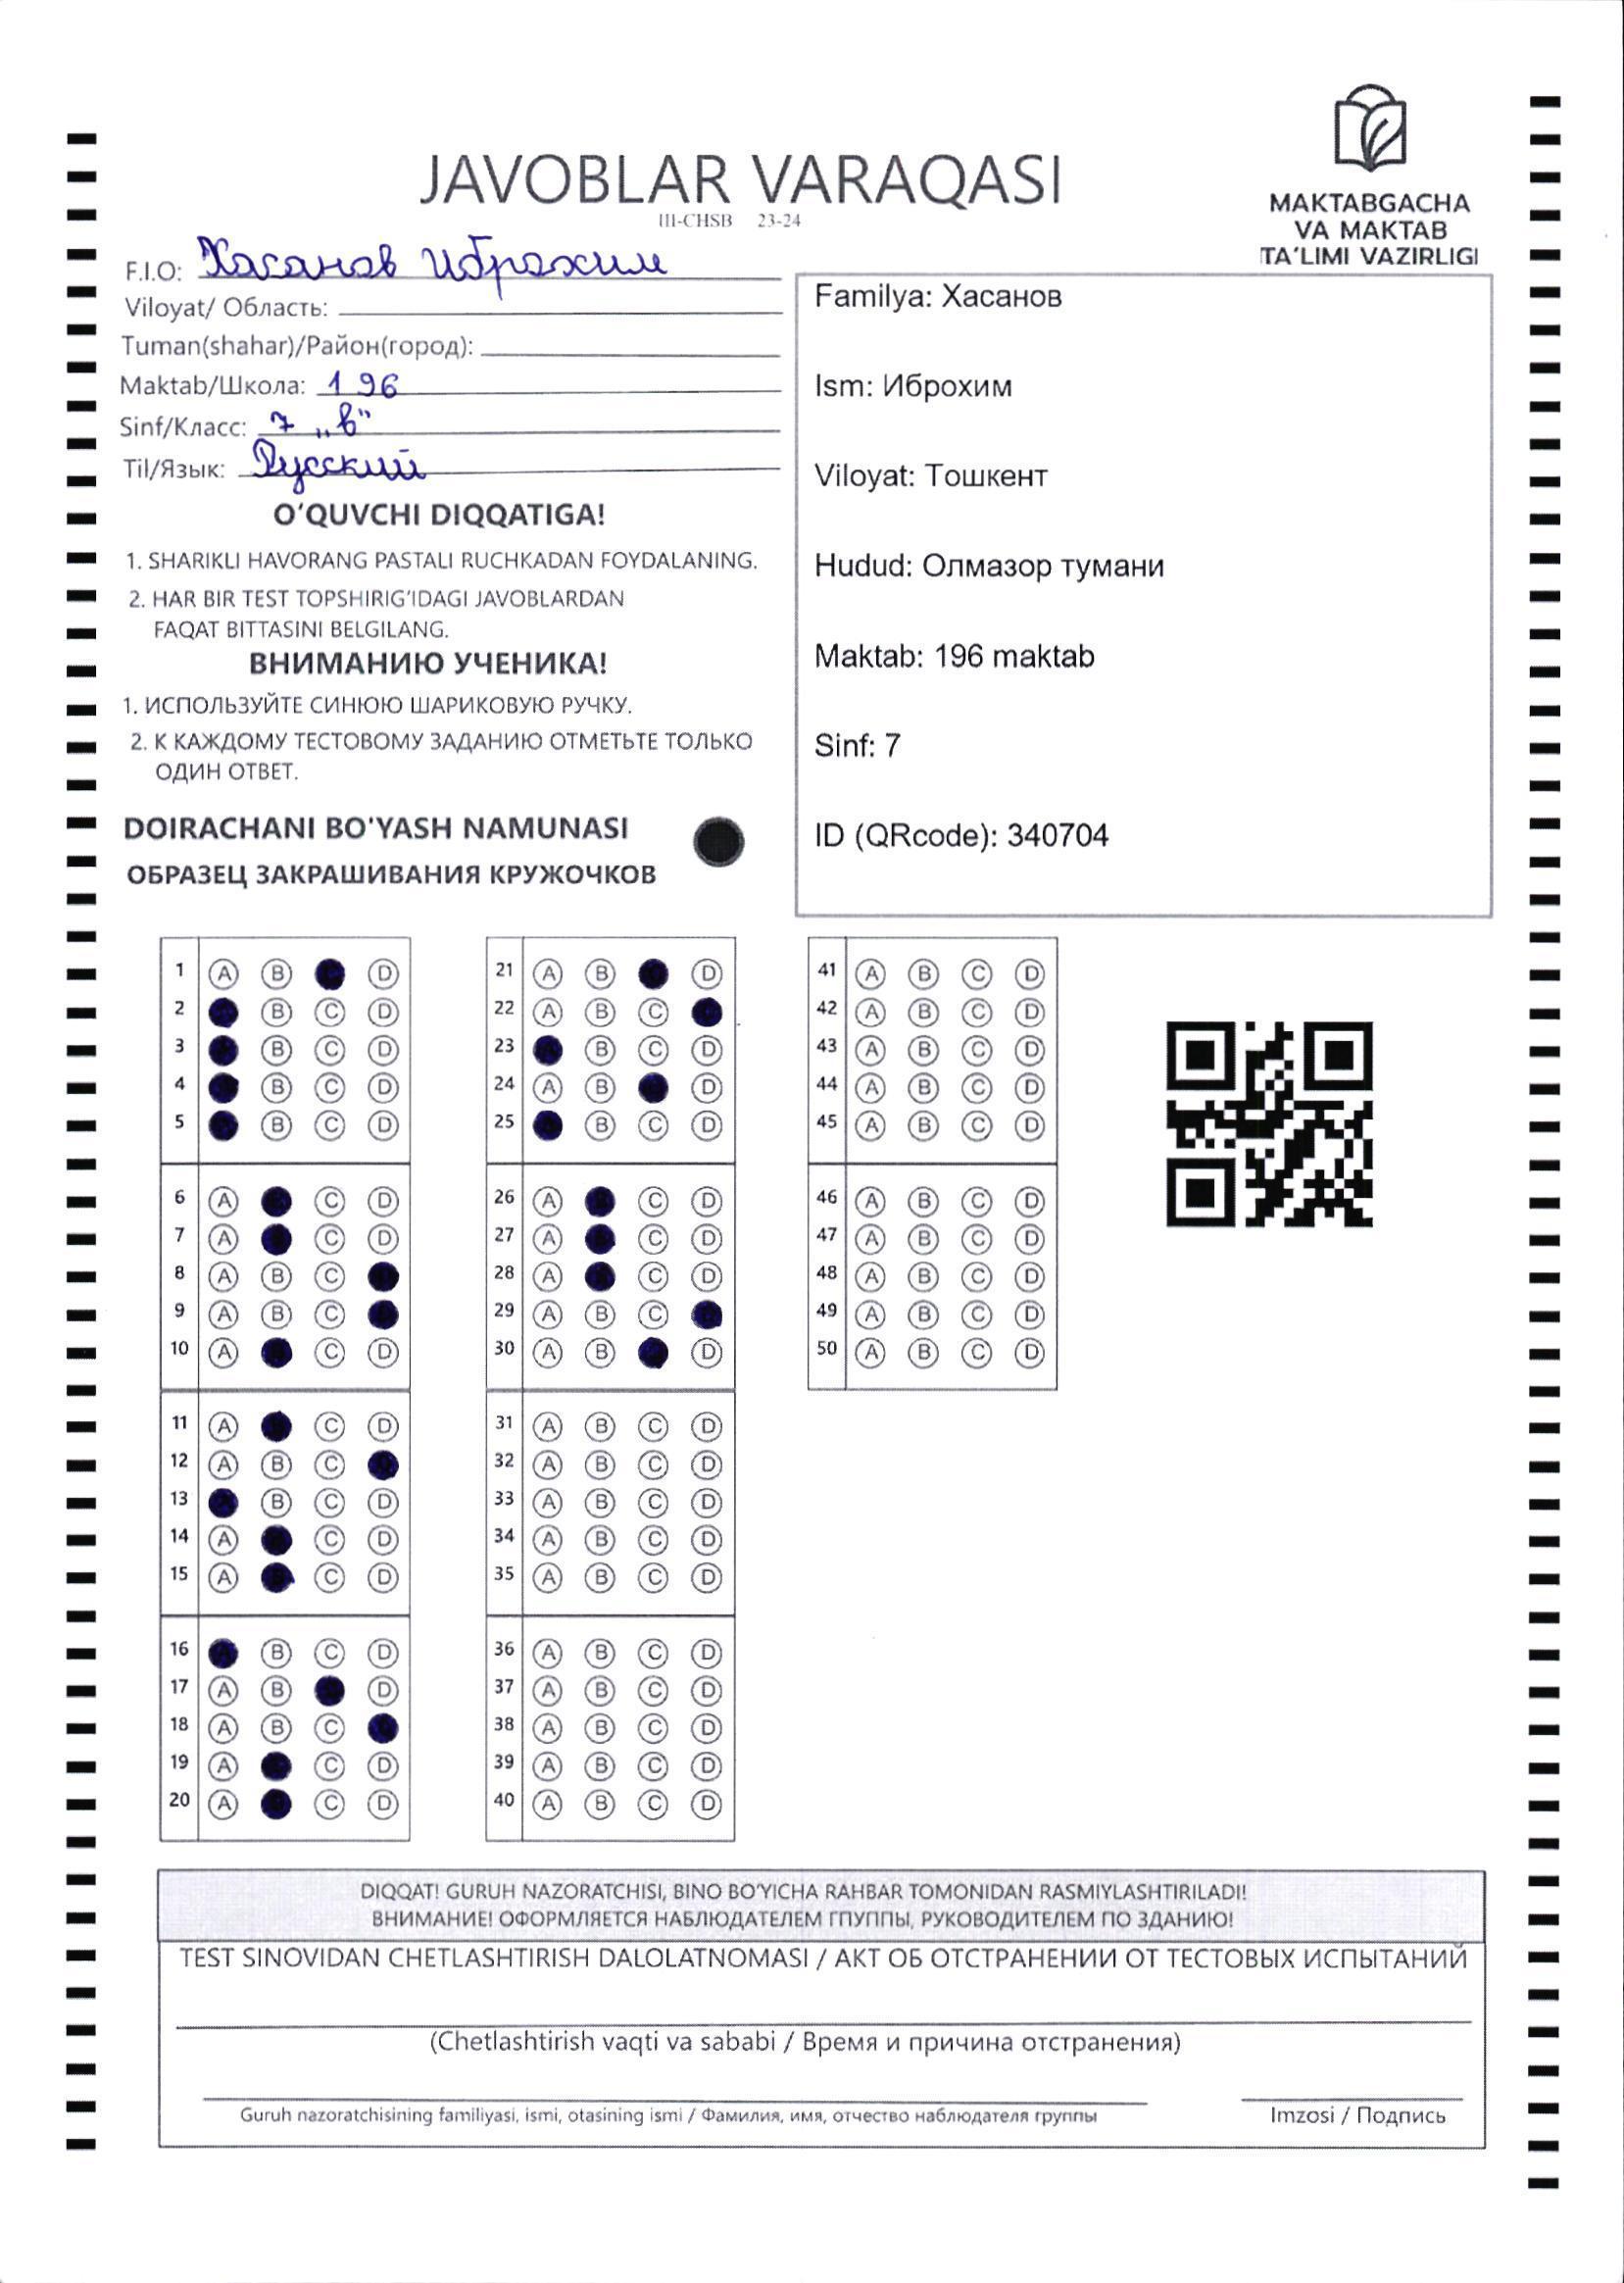 JAVOBLAR VARAQASI
III-CHSB 23-24
MAKTABGACHA
VA MAKTAB
TA'LIMI VAZIRLIGI
F.I.O: Хасанов Иброхим
Viloyat/ Область:
Tuman(shahar)/Район(город):
Maktab/Школа: 196
Sinf/Класс: 7 „в"
Til/Язык: Русский
O'QUVCHI DIQQATIGA!
1. SHARIKLI HAVORANG PASTALI RUCHKADAN FOYDALANING.
2. HAR BIR TEST TOPSHIRIG'IDAGI JAVOBLARDAN
FAQAT BITTASINI BELGILANG.
ВНИМАНИЮ УЧЕНИКА!
1. ИСПОЛЬЗУЙТЕ СИНЮЮ ШАРИКОВУЮ РУЧКУ.
2. К КАЖДОМУ ТЕСТОВОМУ ЗАДАНИЮ ОТМЕТЬТЕ ТОЛЬКО
ОДИН ОТВЕТ.
DOIRACHANI BO'YASH NAMUNASI
ОБРАЗЕЦ ЗАКРАШИВАНИЯ КРУЖОЧКОВ
Familya: Хасанов
Ism: Иброхим
Viloyat: Тошкент
Hudud: Олмазор тумани
Maktab: 196 maktab
Sinf: 7
ID (QRcode): 340704
1 A B D
2 B C D
3 B C D
4 B C D
5 B C D
6 A C D
7 A C D
8 A B C
9 A B C
10 A C D
11 A C D
12 A B C
13 B C D
14 A C D
15 A C D
16 A B C D
17 A B D
18 A B C
19 A C D
20 A C D
21 A B D
22 A B C
23 B C D
24 A B D
25 B C D
26 A C D
27 A C D
28 A C D
29 A B C
30 A B D
31 A B C D
32 A B C D
33 A B C D
34 A B C D
35 A B C D
36 A B C D
37 A B C D
38 A B C D
39 A B C D
40 A B C D
41 A B C D
42 A B C D
43 A B C D
44 A B C D
45 A B C D
46 A B C D
47 A B C D
48 A B C D
49 A B C D
50 A B C D
DIQQAT! GURUH NAZORATCHISI, BINO BO'YICHA RAHBAR TOMONIDAN RASMIYLASHTIRILADI!
ВНИМАНИЕ! ОФОРМЛЯЕТСЯ НАБЛЮДАТЕЛЕМ ГПУППЫ, РУКОВОДИТЕЛЕМ ПО ЗДАНИЮ!
TEST SINOVIDAN CHETLASHTIRISH DALOLATNOMASI / АКТ ОБ ОТСТРАНЕНИИ ОТ ТЕСТОВЫХ ИСПЫТАНИЙ
(Chetlashtirish vaqti va sababi / Время и причина отстранения)
Guruh nazoratchisining familiyasi, ismi, otasining ismi / Фамилия, имя, отчество наблюдателя группы
Imzosi / Подпись